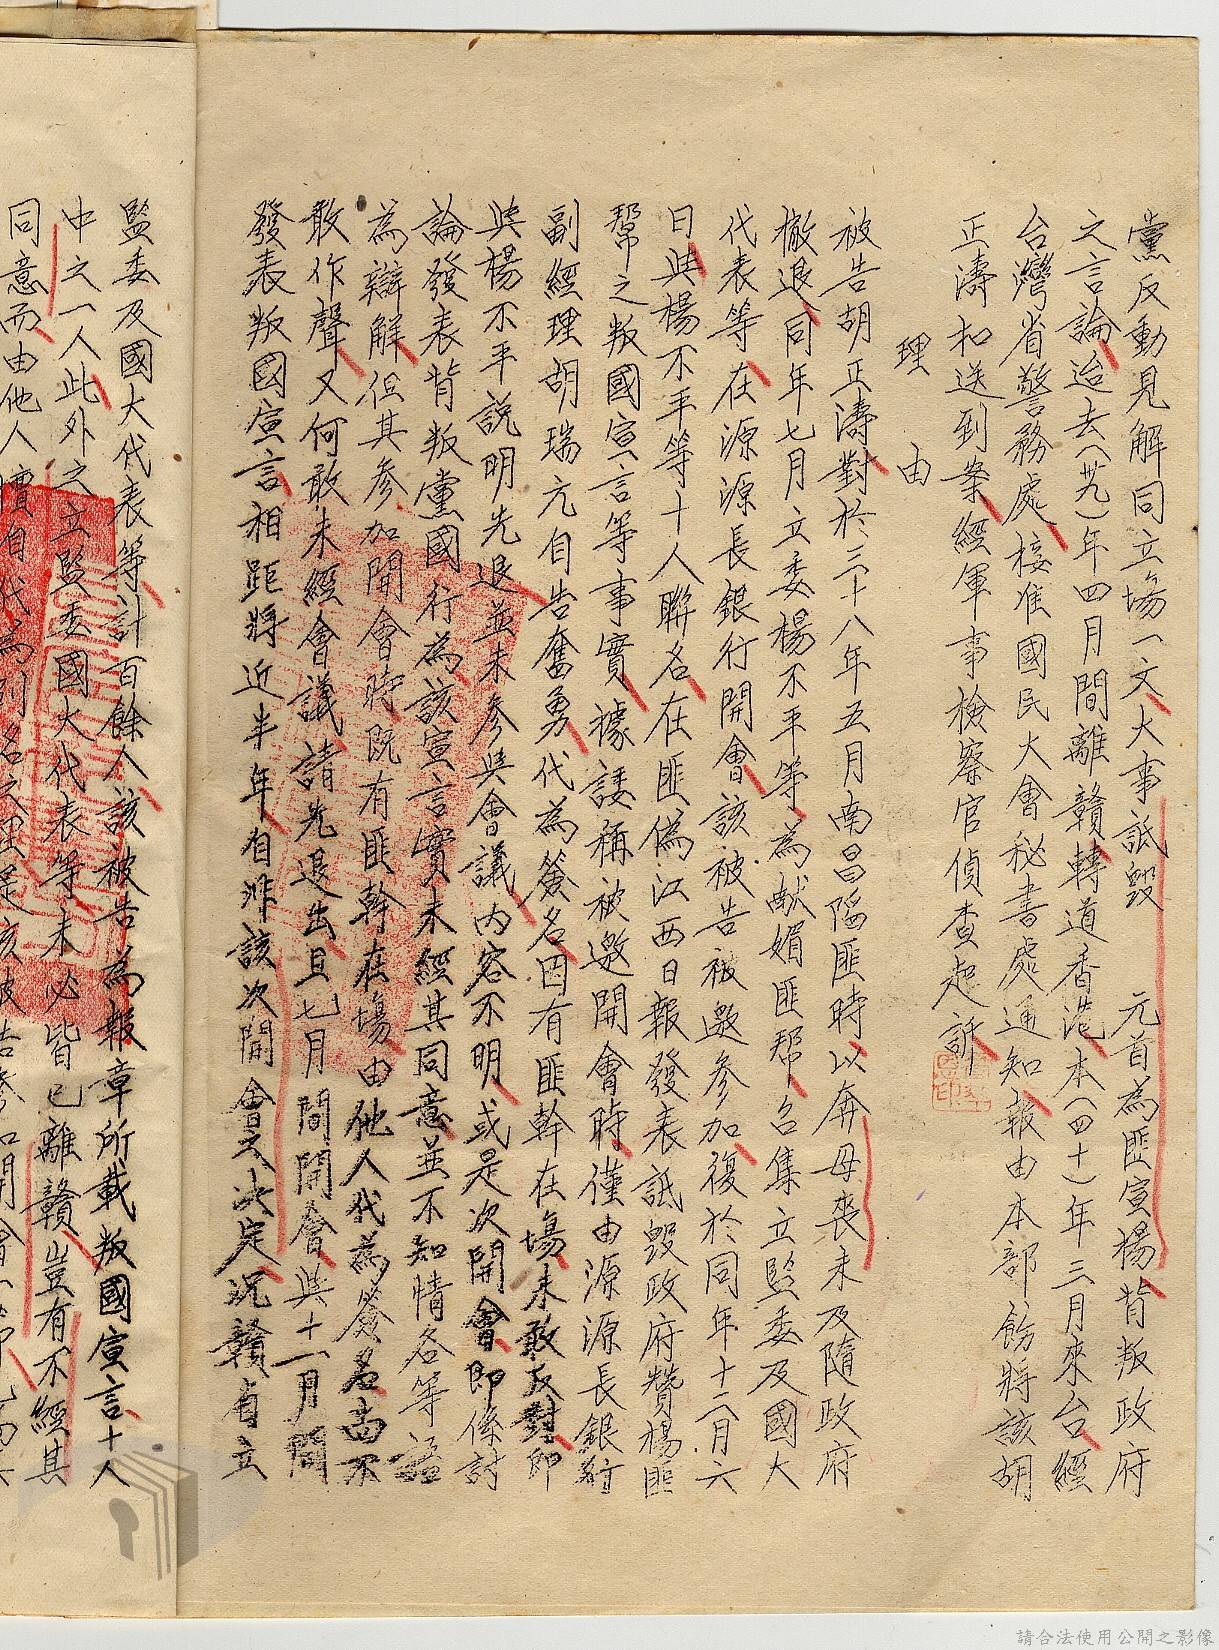 黨反動見解同立場一文大事詆毀　元首為匪宣揚背叛政府
之言論迨去(卅九)年四月間離贛轉道香港本(四十)年三月來台經
台灣省警務處接准國民大會秘書處通知報由本部飭將該胡
正濤和送到案經軍事檢察官偵查起訴
理由
被告胡正濤對於三十八年五月南昌陷匪時以奔母喪未及隨政府
撤退同年七月立委楊不平等為献媚匪幫召集立監委及國大
代表等在源源長銀行開會該被告被邀參加復於同年十二月六
日與楊不平等十人聯名在匪偽江西日報發表詆毀政府贊楊匪
幫之叛國宣言等事實據諉稱被邀開會時僅由源源長銀行
副經理胡瑞亢自告奮勇代為簽名因有匪幹在場未敢反對即
與楊不平說明先退並未參與會議內容不明或是次開會即係討
論發表背叛黨國行為該宣言實未經其同意並不知情各等語
為辯解但其參加開會時既有匪幹在場由他人代為簽名尚不
敢作聲又何敢未經會議請先退出且七月間開會與十一月間
發表叛國宣言相距將近半年自非該次開會之決定況贛省立
監委及國大代表等計百餘人該被告為報章所載叛國宣言十人
中之一人此外之立監委國大代表等未必皆已離贛豈有不經其
同意而由他人擅自代為列名之理是該被告參加開會
請合法使用公開之影像